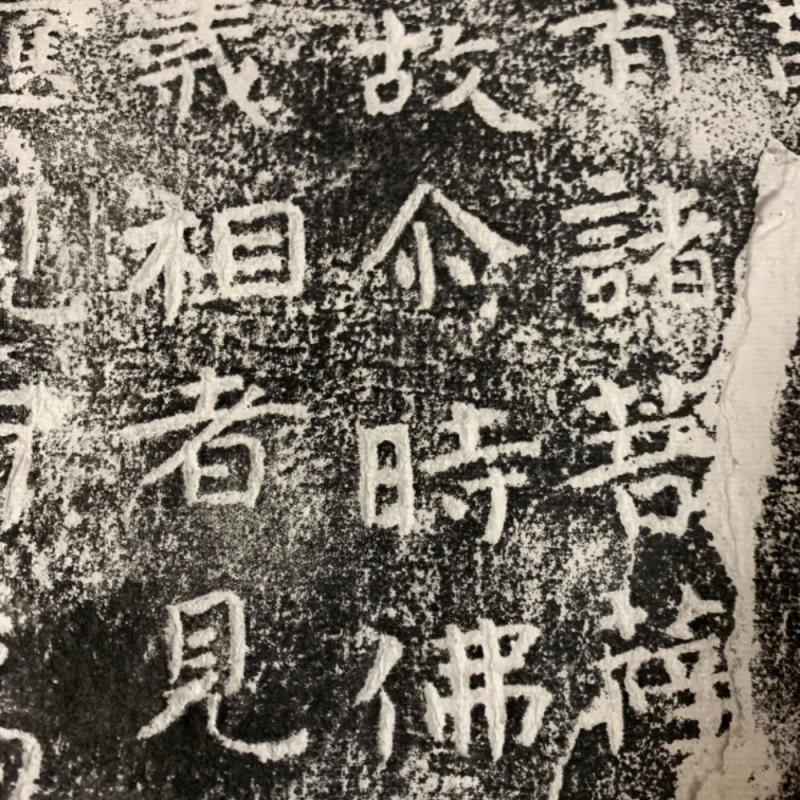 有諸菩薩
故尒時佛
義相者見